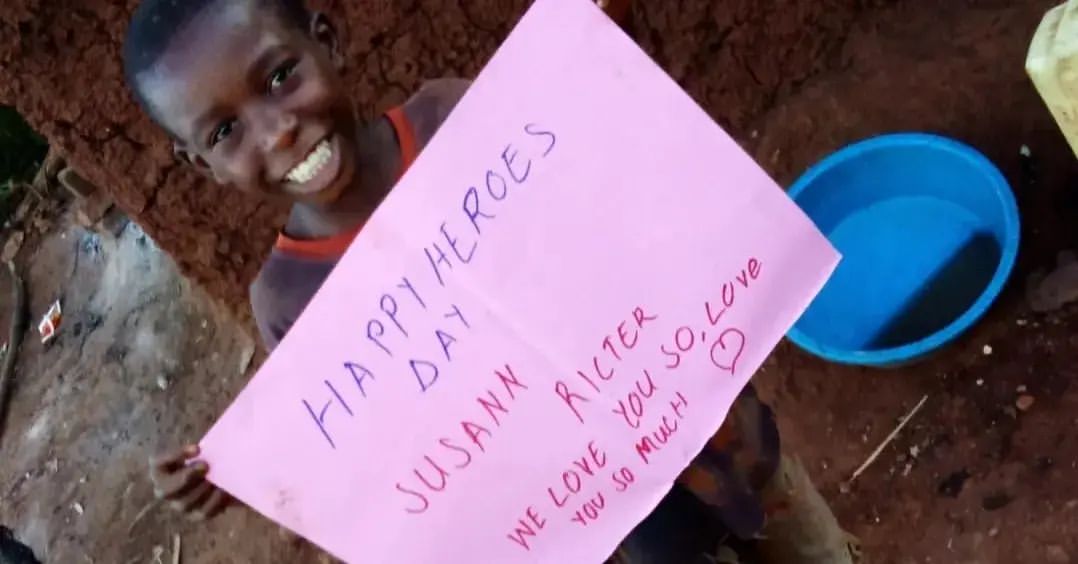 HAPPY HEROES
DAY
SUSANN RICTER
WE LOVE YOU SO, LOVE
YOU SO MUCH